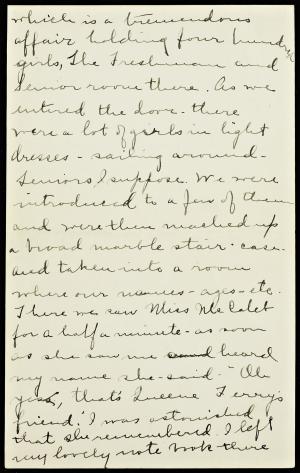 which is a tremendous
affair holding four hundred
girls, The Freshman and
Senior room there. As we
entered the door there
were a lot of girls in light
dresses - sailing around -
Seniors I suppose. We were
introduced to a few of them
and were then marched up
a broad marble stair-case
and taken into a room
where our names - ages - etc.
There we saw Miss McCaleb
for a half a minute - as soon
as she saw me and heard
my name she said - "Oh
yes, that's Queene Ferry's
friend". I was astonished
that she remembered. I left
my lovely note book there